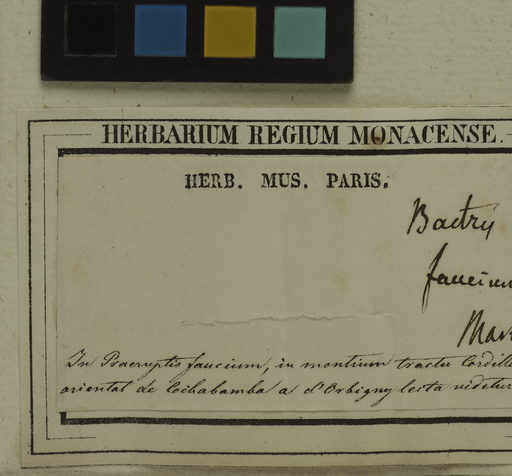 HERBARIUM REGIUM MONACENSE.
HERB. MUS. PARIS.
Bactry
faucium
Mar
In Praeruptis faucium, in montium tractu Cordill
orientat de Cochabamba a d'Orbigny lecta videtur